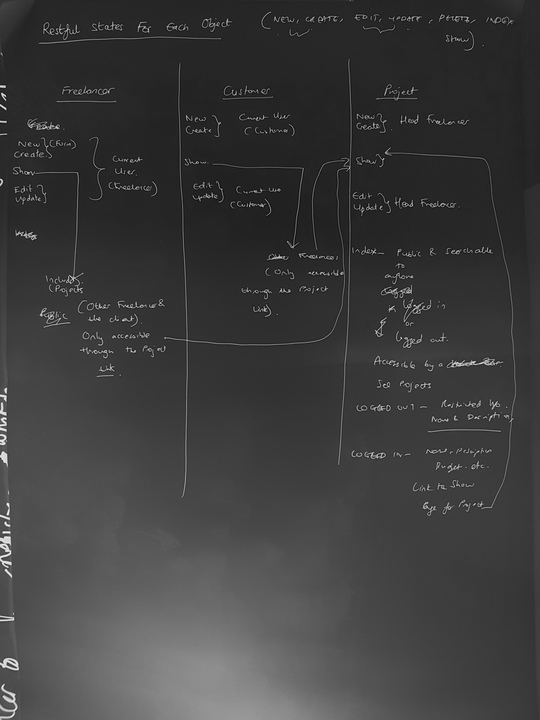 Restful States For Each Object (NEW, CREATE, EDIT, UPDATE, DELETE, INDEX
Show)
Freelancer
New } (Form)
Create
Show
Edit }
Update
Current
User
(Freelancer)
Includes
(Projects
Public (Other Freelancers &
the client)
Only accessible
through the Project
Link
Customer
New }
Create
Current User
(Customer)
Show
Edit }
Update
Current User
(Customer)
Other Freelancers
(Only accessible
through the Project
Link)
Project
New }
Create
Head Freelancer
Show }
Edit }
Update
Head Freelancer
Index - Public & Searchable
to
anyone
Logged in
or
logged out.
Accessible by a
See Projects
LOGGED OUT - Restricted Info.
Name & Description
LOGGED IN - Name, Description
Budget. etc.
Link to Show
Page for Project